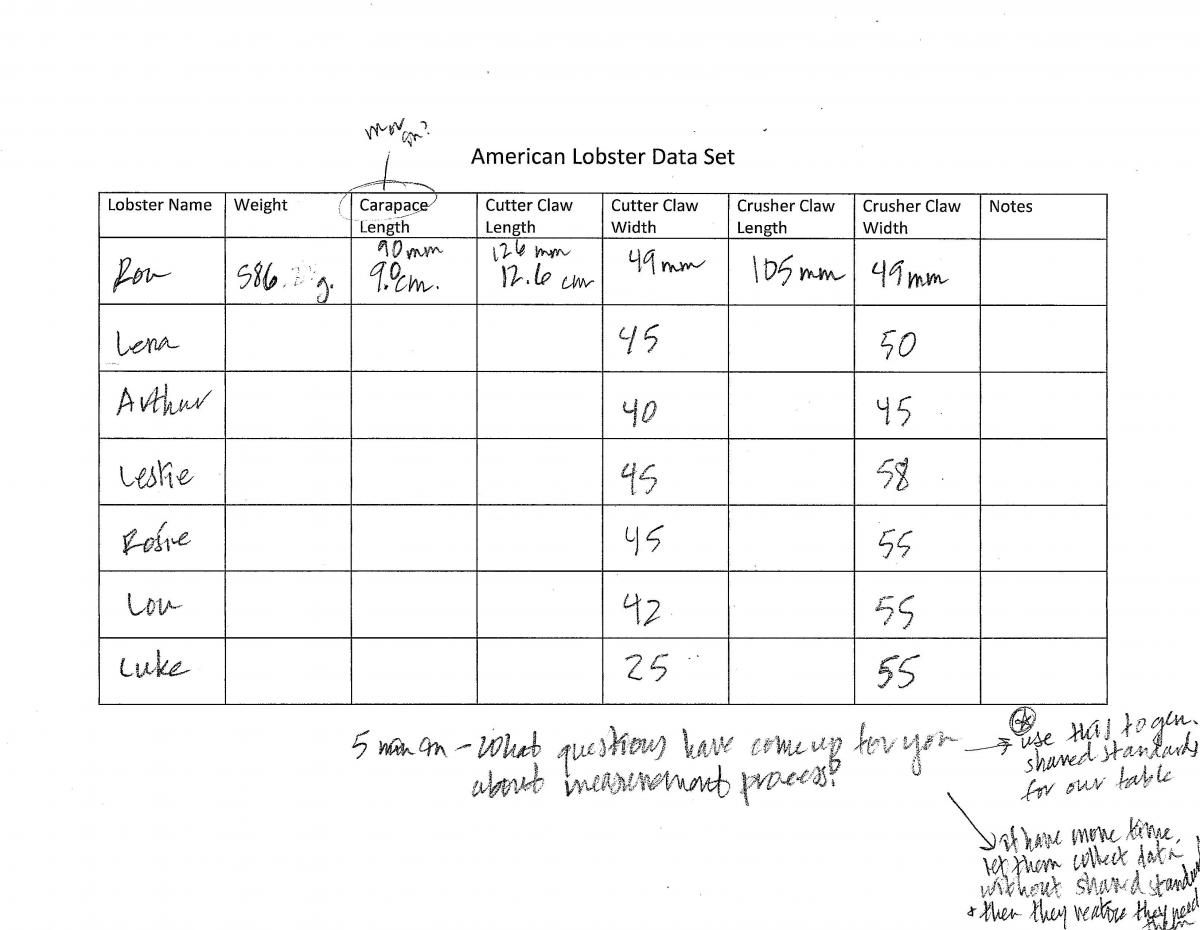 mm or
cm?
American Lobster Data Set
Lobster Name Weight Carapace Length Cutter Claw Length Cutter Claw Width Crusher Claw Length Crusher Claw Width Notes
Ron 586. g. 90mm 9.0cm. 126 mm 12.6 cm 49mm 105mm 49mm
Lena 45 50
Arthur 40 45
Leslie 45 58
Rosie 45 55
Lou 42 55
Luke 25 55
5 min on – What questions have come up for you
about measurement process?
→ use this to gen.
shared standards
for our table
if have more time,
let them collect data
without shared standards
+ then they realize they need
them